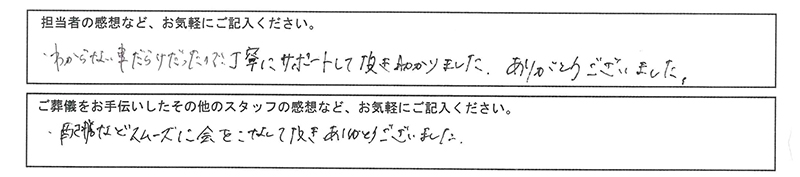 担当者の感想など、お気軽にご記入ください。
・わからない事だらけだったので丁寧にサポートして頂き助かりました。ありがとうございました。
ご葬儀をお手伝いしたその他のスタッフの感想など、お気軽にご記入ください。
・配膳などスムーズに会をこなして頂きありがとうございました。